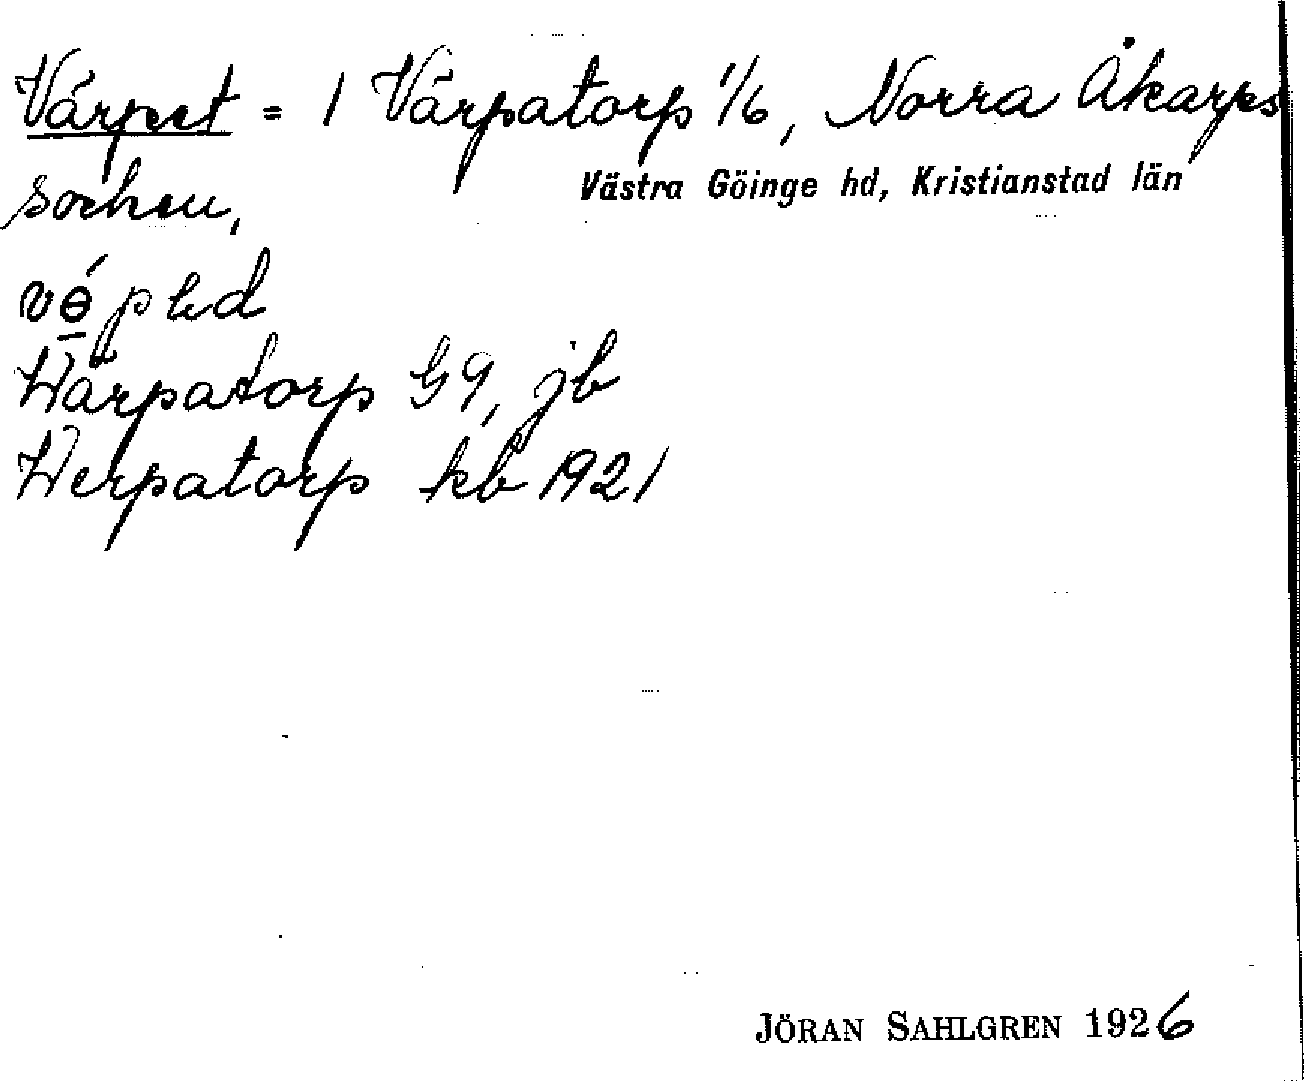 Värpet = 1 Värpatorp 1/6, Norra Åkarps
Västra Göinge hd, Kristianstad län
socken,
Wärpatorp G9, jb
Werpatorp kb 1921
JÖRAN SAHLGREN 1926